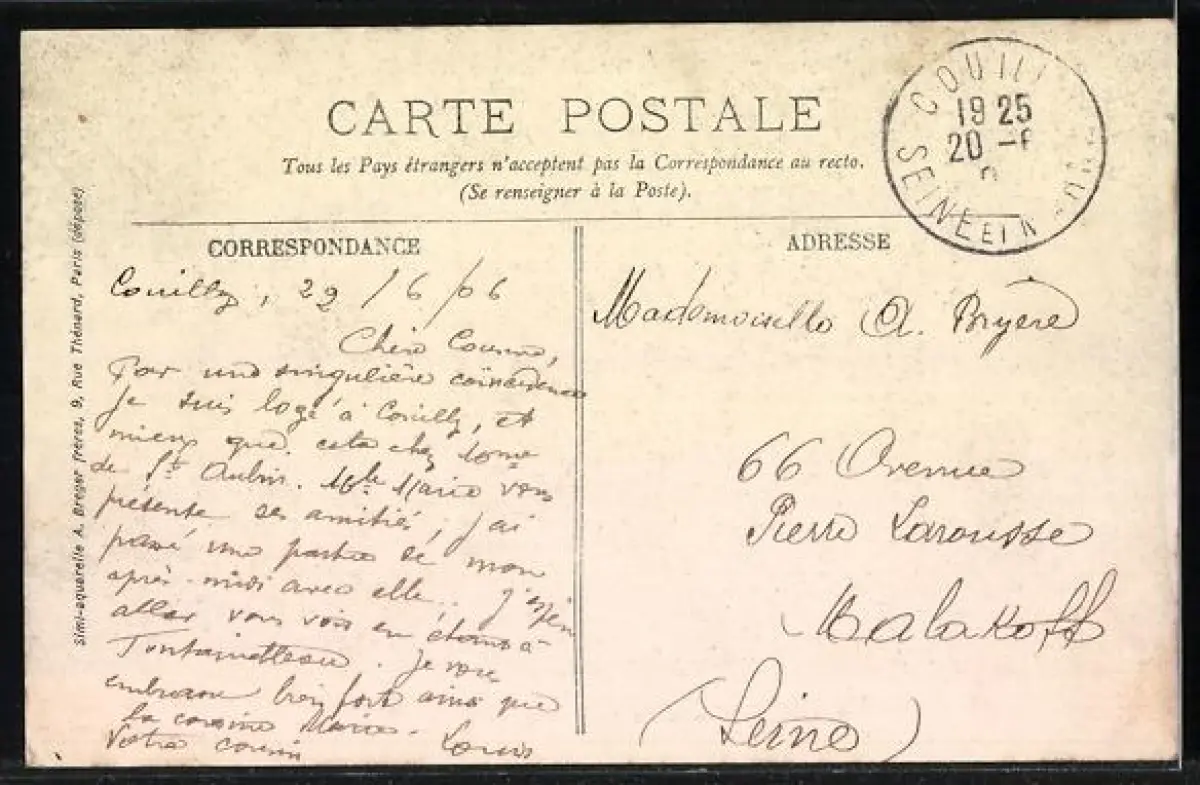 CARTE POSTALE
Tous les Pays étrangers n'acceptent pas la Correspondance au recto.
(Se renseigner à la Poste).
COUILL
19 25
20 -6
SEINE ET M
CORRESPONDANCE
Couilly, 29/6/06
Chère Cousine,
Par une singulière coincidence
je suis logé à Couilly, et
mieux que cela chez
de St Aubin. Mlle Marie vous
présente ses amitiés, j'ai
passé une partie de mon
après-midi avec elle. J'espère
aller vous voir en à
Je vous
embrasse bien fort ainsi que
la cousine Marie.
Votre cousin Louis
ADRESSE
Mademoiselle A. Bryère
66 Avenue
Pierre Larousse
Malakoff
(Seine)
Simi-aquarelle A. Breger frères, 9, Rue Thénard, Paris (déposé)